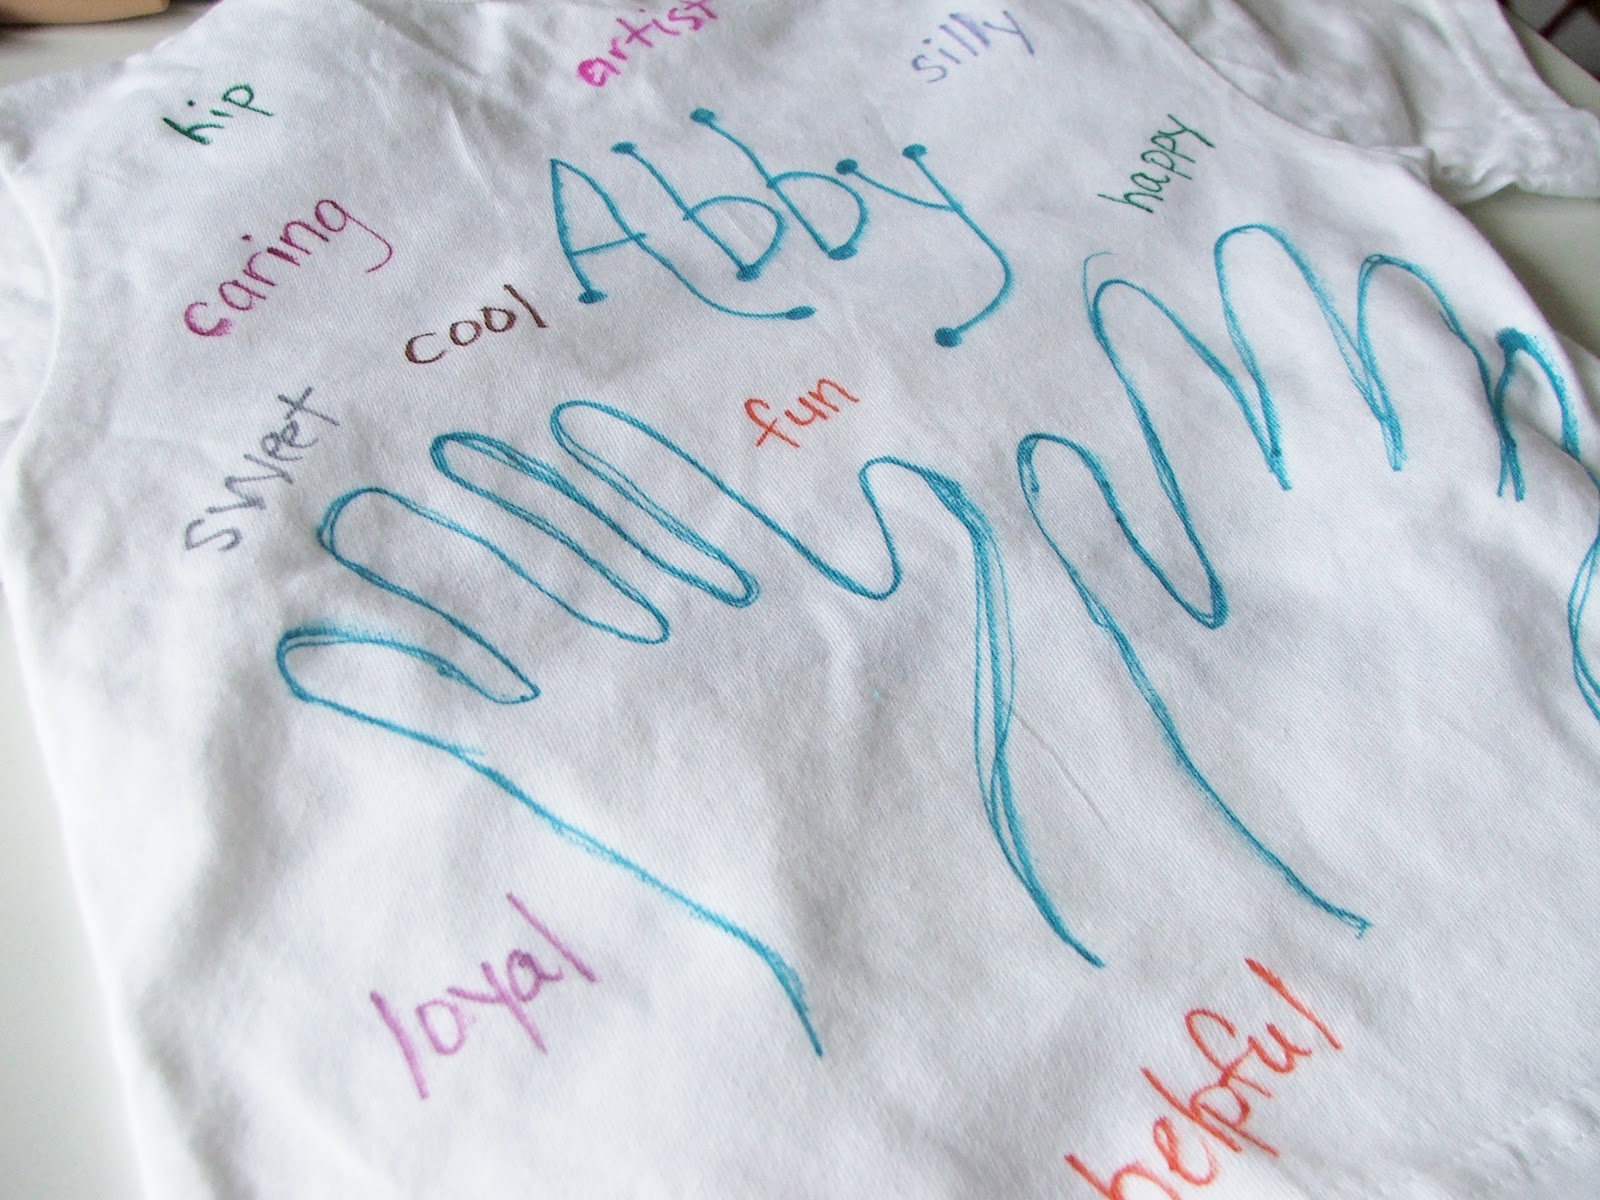 artist
silly
hip
Abby
happy
caring
cool
fun
sweet
loyal
helpful